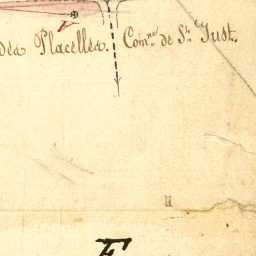 des Placelles. Com.ne de St. Just.
F